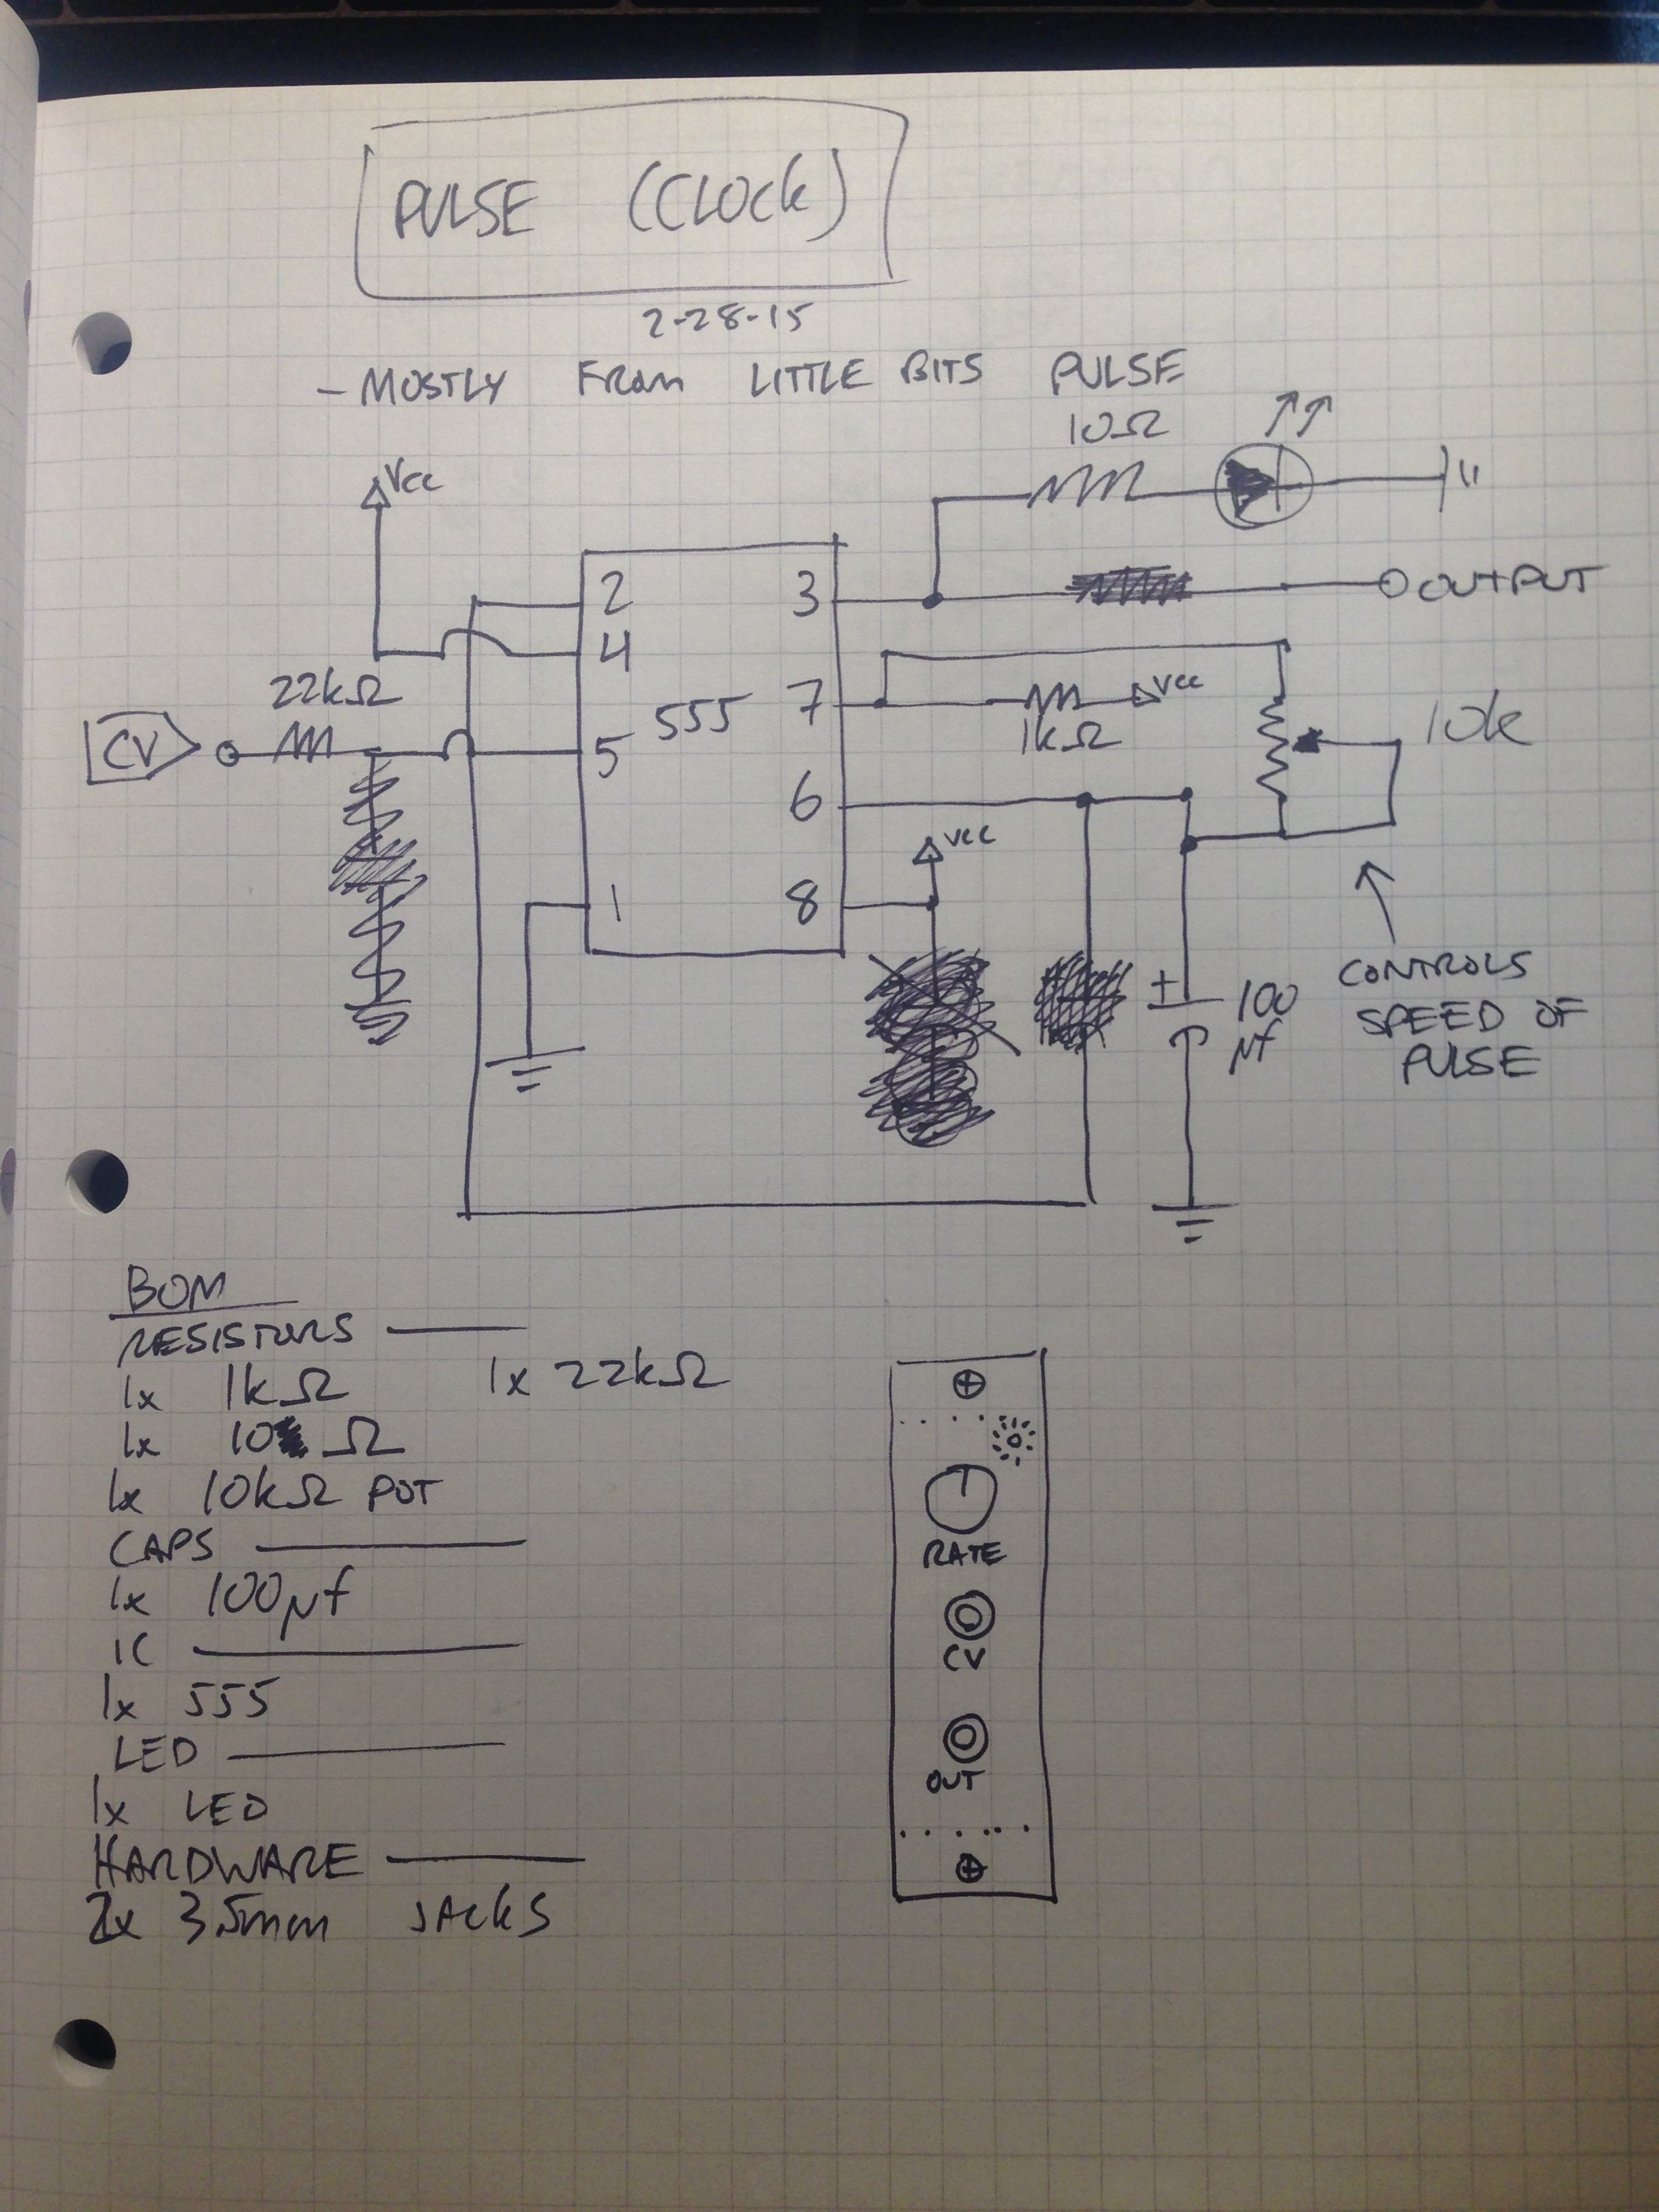 PULSE (CLOCK)
2-28-15
- MOSTLY FROM LITTLE BITS PULSE
10Ω
Vcc
2 3
OUTPUT
4
22kΩ
7
Vcc
555
1kΩ
10k
CV
5
6
Vcc
1 8
+
100
µf
CONTROLS
SPEED OF
PULSE
BOM
RESISTORS
1x 1kΩ 1x 22kΩ
1x 10 Ω
1x 10kΩ POT
CAPS
1x 100µf
IC
1x 555
LED
1x LED
HARDWARE
2x 3.5mm JACKS
RATE
CV
OUT